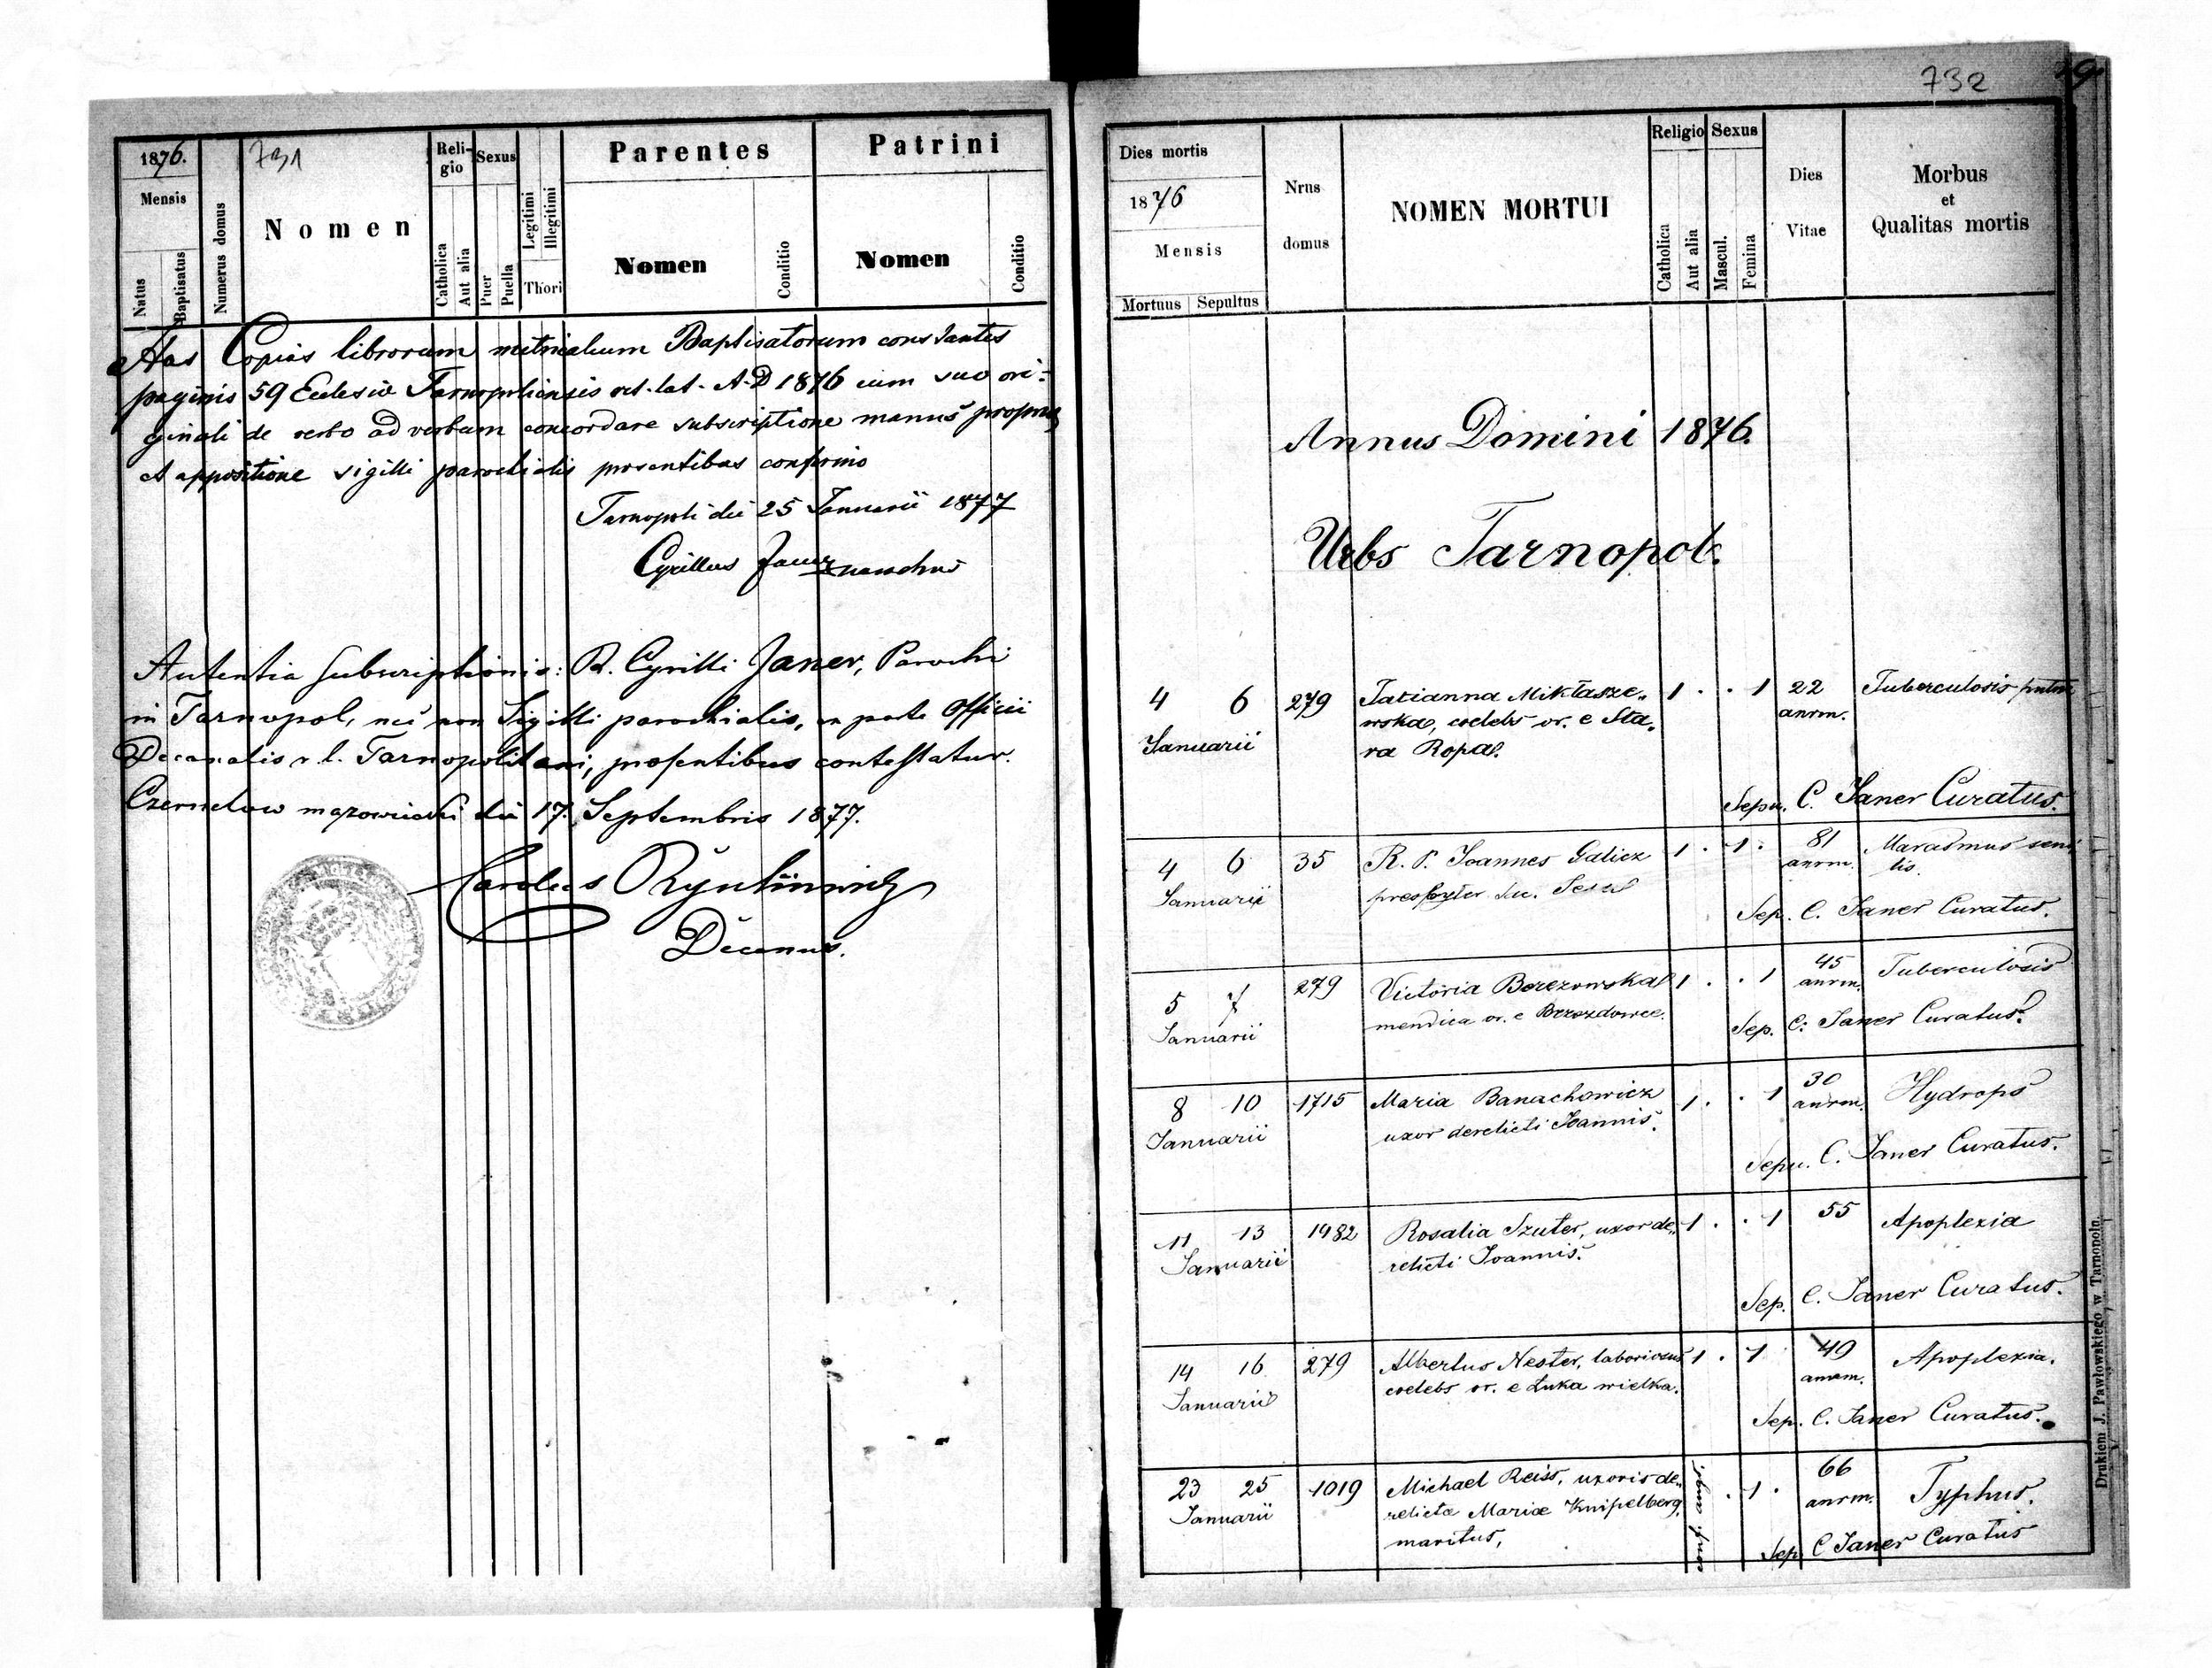 731
1876.
Mensis
Natus
Baptisatus
Numerus domus
Nomen
Reli-
gio
Catholica
Aut alia
Sexus
Puer
Puella
Legitimi
Illegitimi
Thori
Parentes
Nomen
Conditio
Patrini
Nomen
Conditio
Has Copias librorum metricalium Baptisatorum constantes
paginis 59 Eclesiæ Tarnopoliensis rit. lat. A. D 1876 cum suo ori-
ginali de verbo ad verbum concordare subscriptione manus propriæ
et appositione sigilli parochialis præsentibus confirmo
Tarnopoli die 25 Januarii 1877
Cyrillus Janer
Autentia subscriptionis: R. Cyrilli Janer, Parochi
in Tarnopol, nec non Sigilli parochialis, ex parte Officii
Decanalis r. l. Tarnopolitani, præsentibus contestatur.
Czernelow mazowiecki die 17. Septembris 1877.
Carolus
Decanus.
732
Dies mortis
1876
Mensis
Mortuus Sepultus
Nrus
domus
NOMEN MORTUI
Religio
Catholica
Aut alia
Sexus
Mascul.
Femina
Dies
Vitae
Morbus
et
Qualitas mortis
Annus Domini 1876.
Urbs Tarnopol.
4 6 279 Tatianna Miktasze„ 1 . . 1 22 Tuberculosis pulm
Januarii wska, coelebs or. e Sta„ annm.
ra Ropa.
Sepu. C. Janer Curatus.
4 6 35 R. P. Joannes Galicz 1 . 1 . 81 Marasmus seni
Januarii presbyter Soc. Jesu annm. lis.
Sep. C. Janer Curatus.
5 7 279 Victoria Berezowska 1 . . 1 45 Tuberculosis
Januarii mendica or. e Brzozdowce. annm.
Sep. C. Janer Curatus.
8 10 1715 Maria Banachowicz 1 . . 1 30 Hydrops
Januarii uxor derelicti Joannis. annm.
Sepu. C. Janer Curatus.
11 13 1982 Rosalia Szuter, uxor de„ 1 . . 1 55 Apoplexia
Januarii relicti Joannis.
Sep. C. Janer Curatus.
14 16 279 Albertus Nester, laboriosus 1 . 1 49 Apoplexia.
Januarii coelebs or. e Łuka wielka. annm.
Sep. C. Janer Curatus.
23 25 1019 Michael Reiss, uxoris de„ . 1 . 66 Typhus.
Januarii relictæ Mariæ Knipelberg annm.
maritus,
Sep. C Janer Curatus
Drukiem J. Pawłowskiego w Tarnopolu.